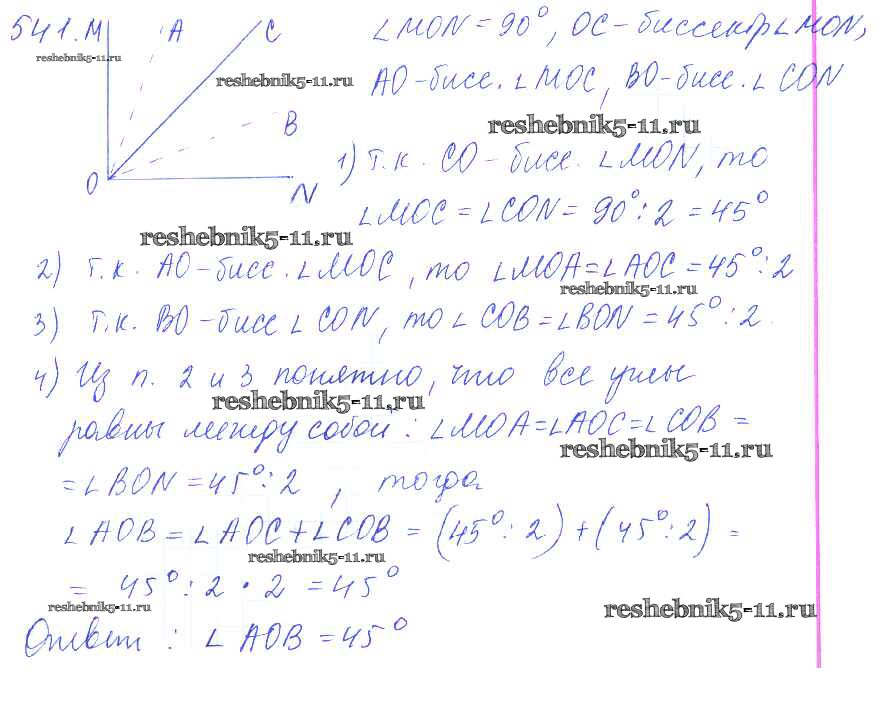 541. M A C ∠MON = 90°, OC – биссектр ∠MON,
reshebnik5-11.ru
reshebnik5-11.ru AO – бисс. ∠MOC, BO – бисс. ∠CON
B reshebnik5-11.ru
1) т.к. CO – бисс. ∠MON, то
O N
∠MOC = ∠CON = 90° : 2 = 45°
reshebnik5-11.ru
2) т.к. AO – бисс. ∠MOC, то ∠MOA = ∠AOC = 45° : 2
reshebnik5-11.ru
3) т.к. BO – бисс ∠CON, то ∠COB = ∠BON = 45° : 2.
4) Из п. 2 и 3 понятно, что все углы
reshebnik5-11.ru
равны между собой : ∠MOA = ∠AOC = ∠COB =
reshebnik5-11.ru
= ∠BON = 45° : 2 , тогда
∠AOB = ∠AOC + ∠COB = (45° : 2) + (45° : 2) =
reshebnik5-11.ru
= 45° : 2 · 2 = 45°
reshebnik5-11.ru reshebnik5-11.ru
Ответ : ∠AOB = 45°